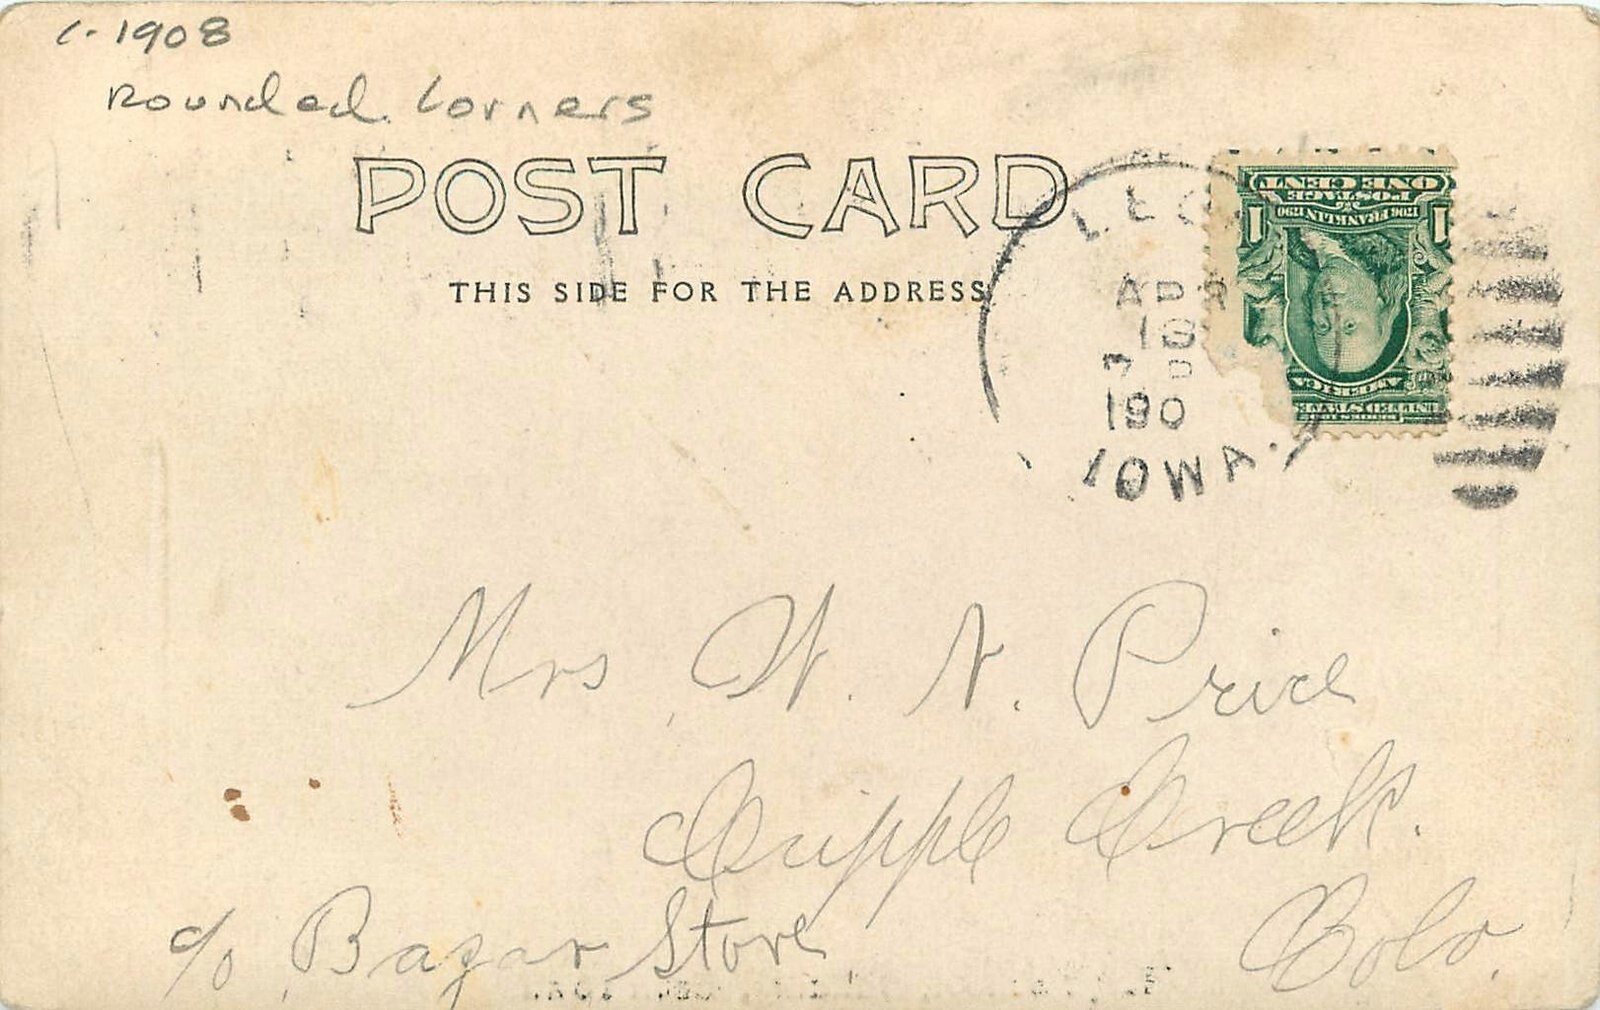 c. 1908
Rounded Corners
POST CARD
THIS SIDE FOR THE ADDRESS
APR
18
7 P
190
IOWA.
SERIES 1902
UNITED STATES
AMERICA
1706 FRANKLIN 1790
1 1
POSTAGE
ONE CENT
Mrs W. N. Price
Cripple Creek.
c/o Bazar Store
Colo.